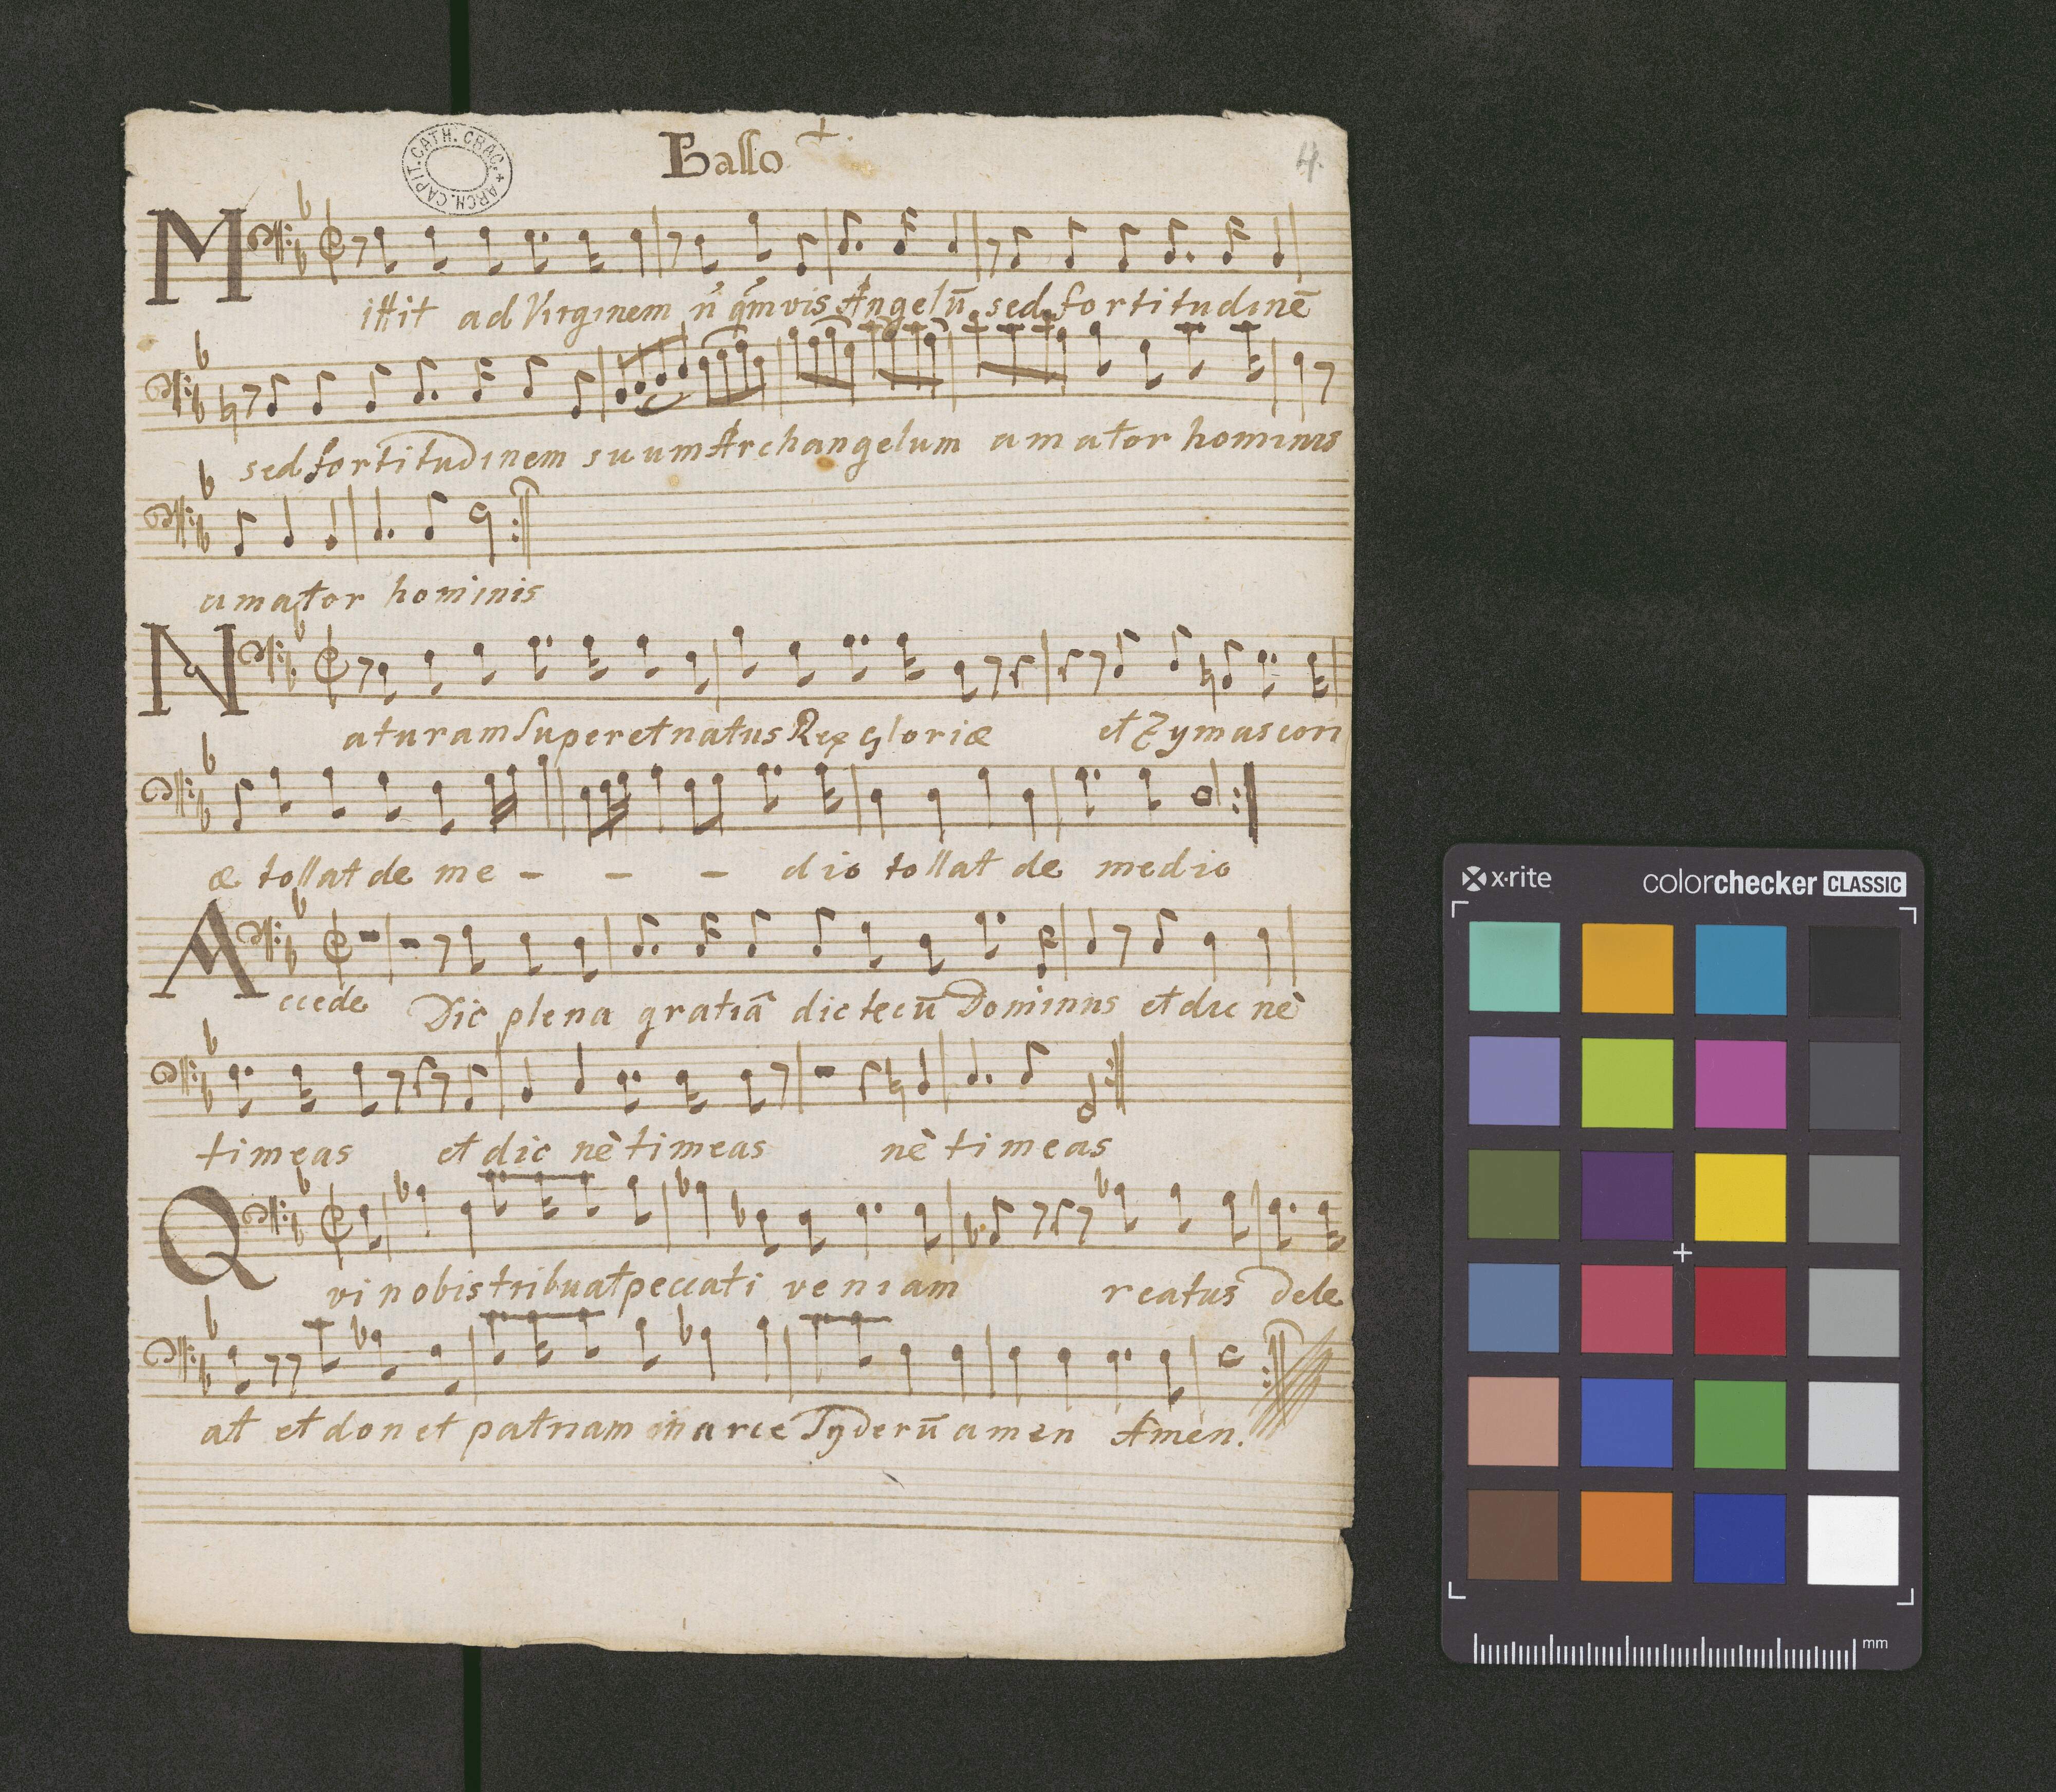 Basso
4.
ARCH. CAPIT. CATH. CRAC. *
Mittit ad Virginem n̄ qm̄vis Angelū sed fortitudinē
sed fortitudinem suum Archangelum amator hominis
amator hominis
Naturam superet natus Rex Gloriæ et Zymas con
æ tollat de me - - - dio tollat de medio
Accede Dic plena gratiā dic tecū Dominus et dic nè
timeas et dic nè timeas nè timeas
Qvi nobis tribuat peccati veniam reatus dele
at et donet patriam in arce Syderū amen Amen.
x·rite
colorchecker CLASSIC
mm